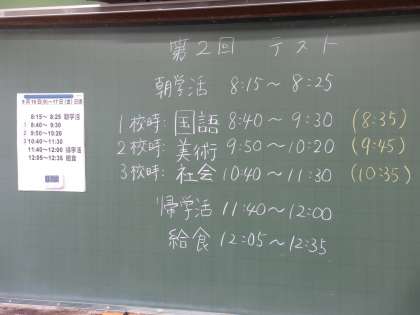 第2回 テスト
朝学活 8:15～8:25
1校時:国語 8:40～9:30 (8:35)
2校時:美術 9:50～10:20 (9:45)
3校時:社会 10:40～11:30 (10:35)
帰学活 11:40～12:00
給食 12:05～12:35
8:15～ 8:25 朝学活
1 8:40～ 9:30
2 9:50～10:20
3 10:40～11:30
11:40～12:00 帰学活
12:05～12:35 給食